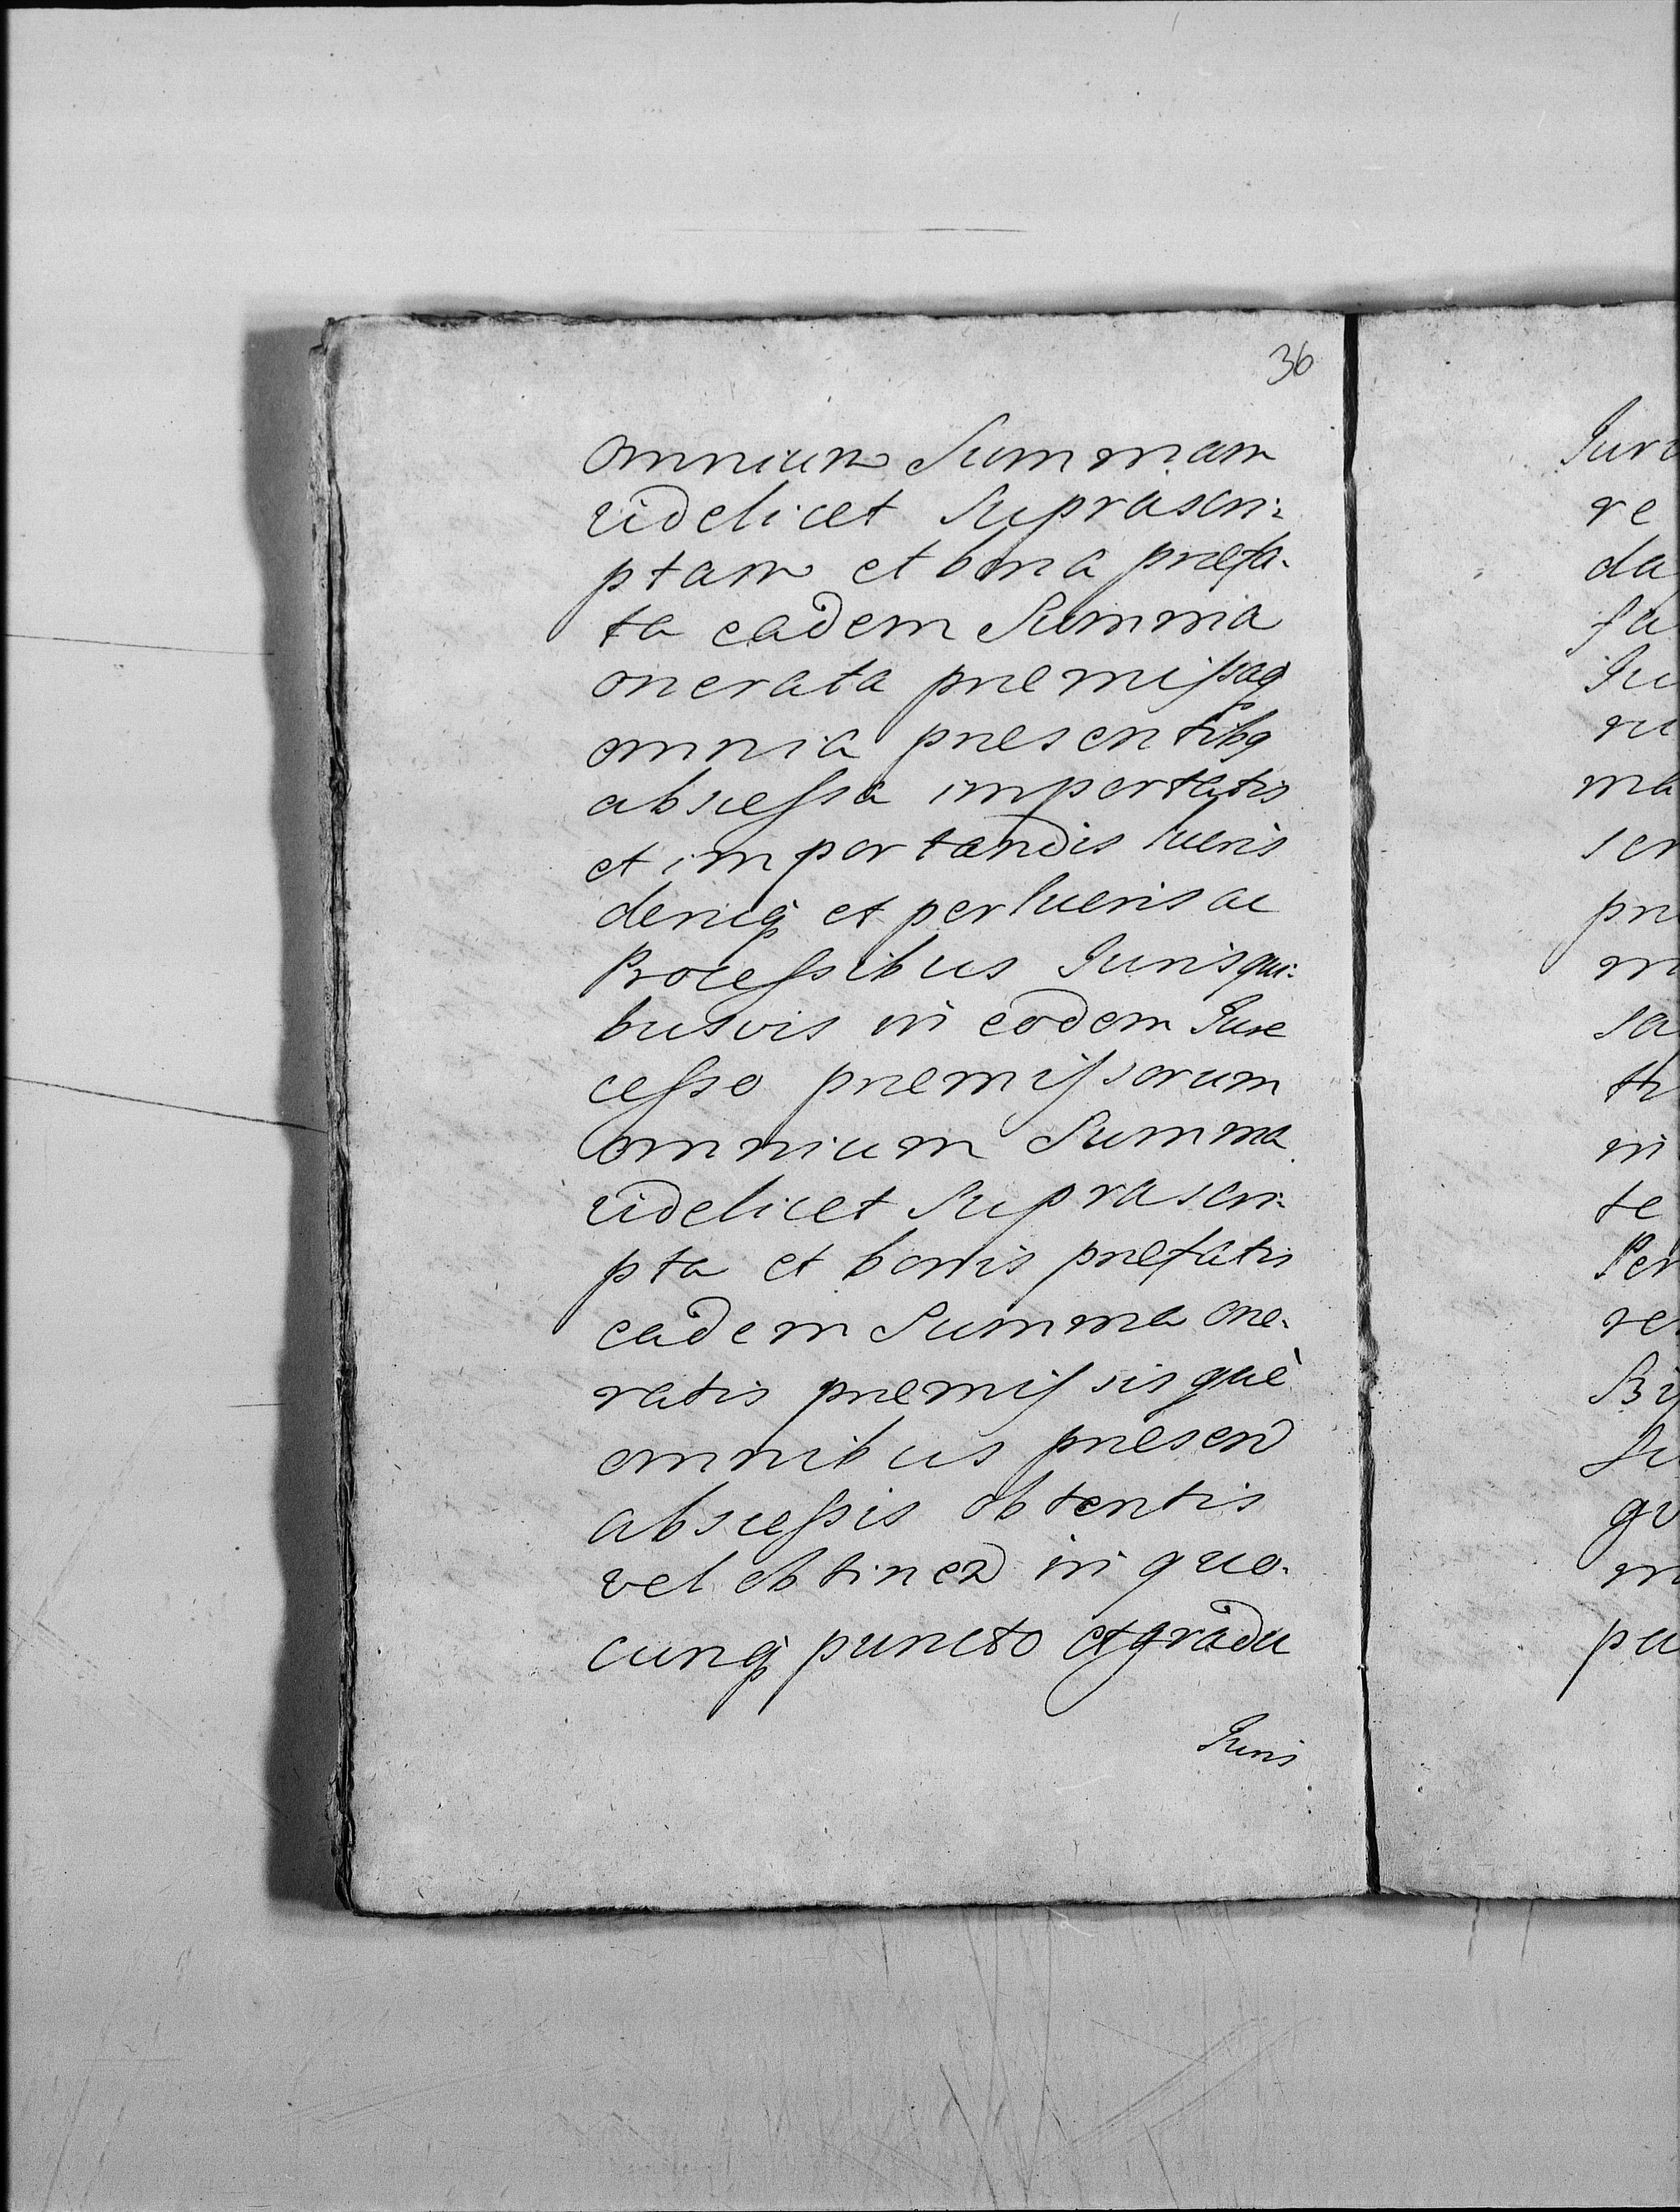 36
omnium Summam
videlicet Suprascri:
ptam et bona præfa-
ta eadem Summa
onerata præmissaq
omnia præsentibq
abscessa importatis
et importandis lucris
deniq et per lucris ac
Processibus Juris qui:
busvis in eodem Jure
cesso præmissorum
omnium Summa
videlicet Suprascri-
pta et bonis præfatis
eadem Summa one-
ratis præmissis què
omnibus præsend
abscessis obtentis
vel obtinend in quo-
cunq puncto et gradu
Juris
re
da
fa
Ju
ru
ma
scr
pr
sa
in
te
Per
re
pu